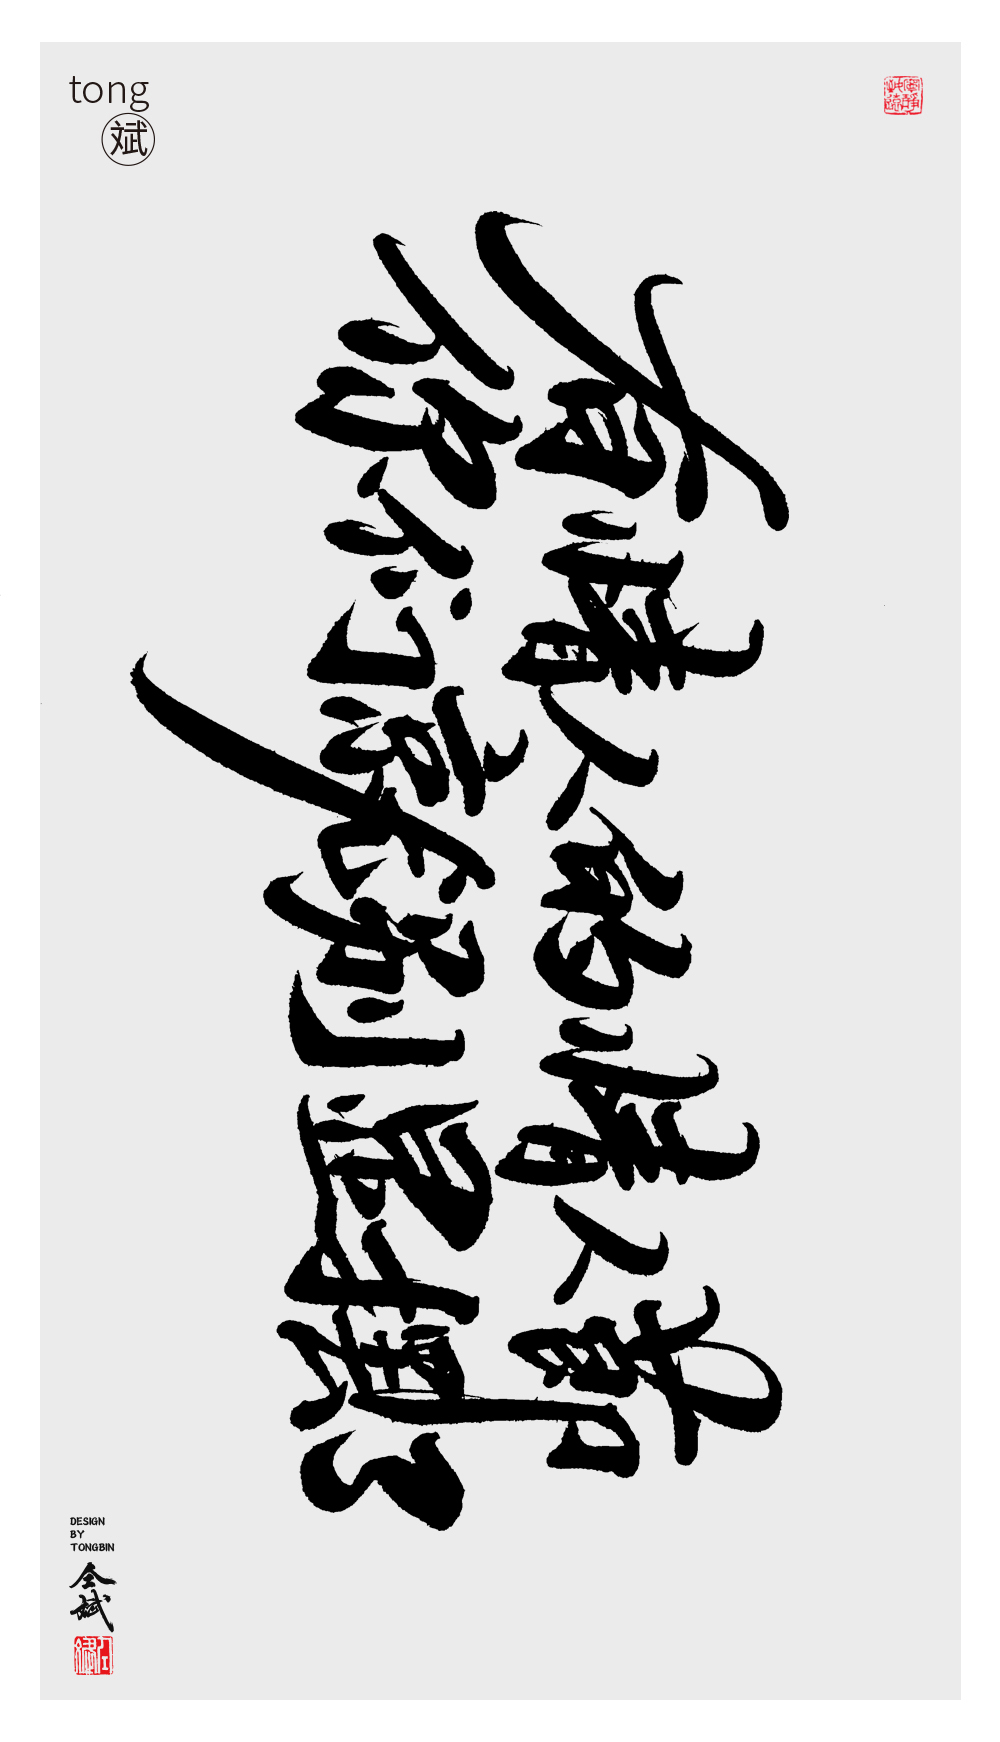 tong
斌
有情人的情人节
你们就别
了
DESIGN
BY
TONGBIN
全斌